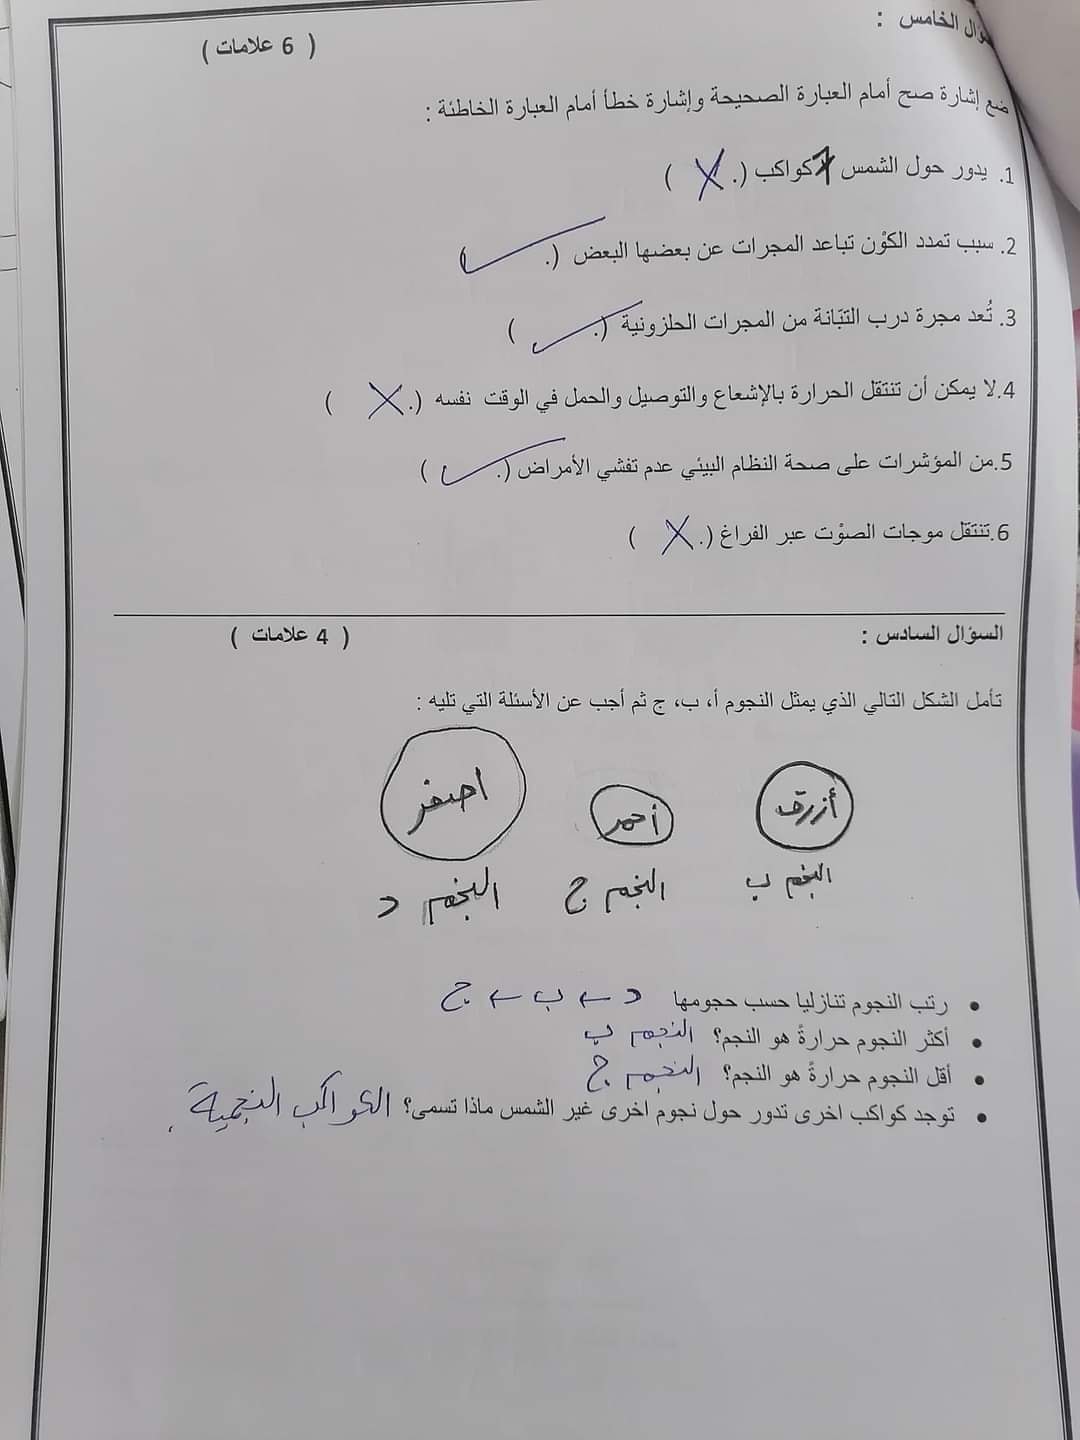 سؤال الخامس : ( 6 علامات )
ضع إشارة صح أمام العبارة الصحيحة وإشارة خطأ أمام العبارة الخاطئة :
1. يدور حول الشمس 7 كواكب (. X )
2. سبب تمدد الكوْن تباعد المجرات عن بعضها البعض (. ✓ )
3. تُعد مجرة درب التبّانة من المجرات الحلزونية (. ✓ )
4.لا يمكن أن تنتقل الحرارة بالإشعاع والتوصيل والحمل في الوقت نفسه (. X )
5.من المؤشرات على صحة النظام البيئي عدم تفشي الأمراض (. ✓ )
6.تنتقل موجات الصوْت عبر الفراغ (. X )
السؤال السادس : ( 4 علامات )
تأمل الشكل التالي الذي يمثل النجوم أ، ب، ج ثم أجب عن الأسئلة التي تليه :
أزرق أحمر اصفر
النجم ب النجم ج النجم د
• رتب النجوم تنازليا حسب حجومها د ← ب ← ج
• أكثر النجوم حرارةً هو النجم؟ النجم ب
• أقل النجوم حرارةً هو النجم؟ النجم ج
• توجد كواكب اخرى تدور حول نجوم اخرى غير الشمس ماذا تسمى؟ الكواكب النجمية .